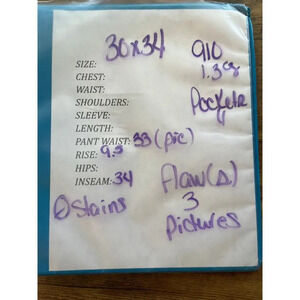 30x34 910
SIZE: 1.3oz
CHEST:
WAIST: Pockets
SHOULDERS:
SLEEVE:
LENGTH:
PANT WAIST: 33 (pic)
RISE: 9.5
HIPS: Flaw(Δ)
INSEAM: 34 3
0 Stains pictures